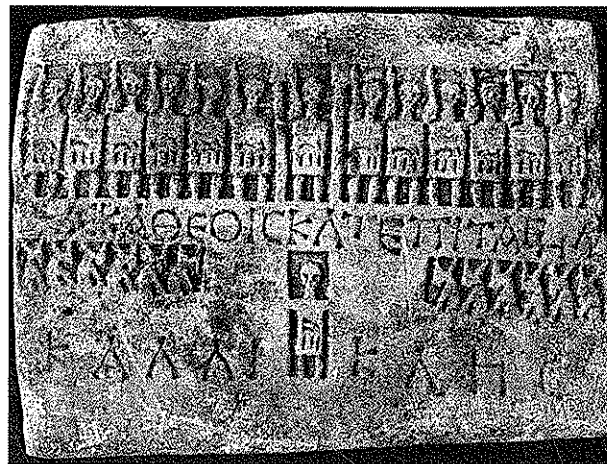 ΚΑΘΕΟΙC ΚΑΤ ΕΠΙΤΑΓΗΝ
ΚΑΛΛΙΚΛΗC